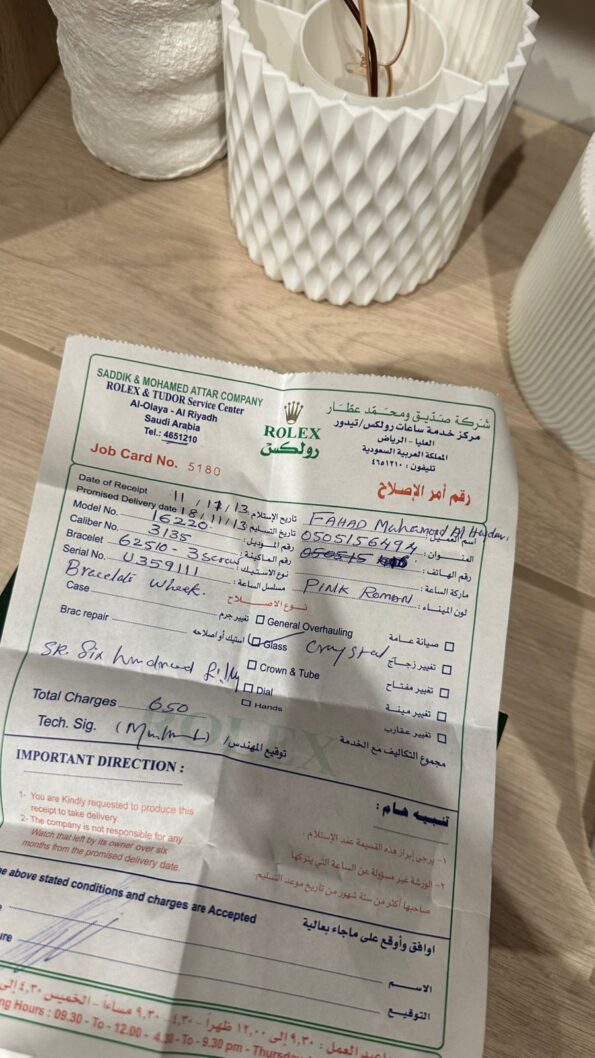 SADDIK & MOHAMED ATTAR COMPANY
ROLEX & TUDOR Service Center
Al-Olaya - Al Riyadh
Saudi Arabia
Tel.: 4651210
ROLEX
رولكس
شركة صديق ومحمد عطار
مركز خدمة ساعات رولكس/تيدور
العليا - الرياض
المملكة العربية السعودية
تليفون : ٤٦٥١٢١٠
Job Card No. 5180
رقم أمر الإصلاح
Date of Receipt 11 / 11 / 13 تاريخ الإستلام
Promised Delivery date 18/11/13 تاريخ التسليم
Model No. 16220 رقم الموديل:
Caliber No. 3135 رقم الماكينة:
Bracelet 62510 - 3 screw نوع الاستيك:
Serial No. U359111 مسلسل الساعة:
FAHAD Mahamed Al
0505156494 العنوان:
050515 رقم الهاتف:
ماركة الساعة:
PINK ROMAN لون الميناء:
نوع الاصلاح
Case تغيير جرم
Brac repair استيك أو اصلاحه
General Overhauling صيانة عامة
Glass Crystal تغيير زجاج
Crown & Tube تغيير مفتاح
Dial تغيير مينة
Hands تغيير عقارب
SR. Six hundred fifty
Total Charges 650 مجموع التكاليف مع الخدمة
Tech. Sig. توقيع المهندس/
ROLEX
IMPORTANT DIRECTION :
تنبيه هام :
1- You are Kindly requested to produce this
receipt to take delivery.
2- The company is not responsible for any
Watch that left by its owner over six
months from the promised delivery date.
١- يرجى إبراز هذه القسيمة عند الإستلام .
٢- الورشة غير مسؤلة عن الساعة التي يتركها
صاحبها أكثر من ستة شهور من تاريخ موعد التسليم.
above stated conditions and charges are Accepted
اوافق وأوقع على ماجاء بعالية
الاسم
التوقيع
العمل : ٩,٣٠ إلى ١٢,٠٠ ظهراً - ٤,٣٠ - ٩,٣٠ مساءاً - الخميس ٤,٣٠ إلى
Hours : 09.30 - To - 12.00 - 4.30 - To - 9.30 pm - Thursday